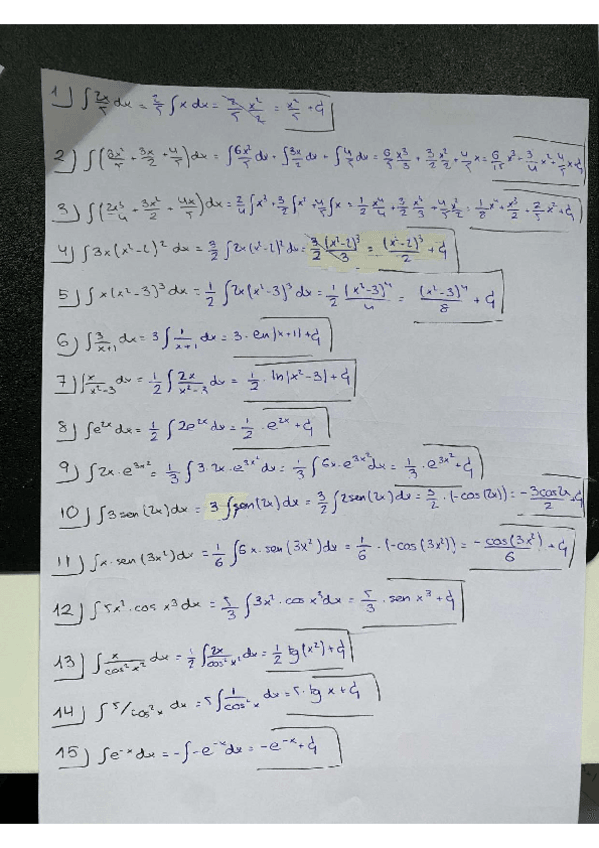 1) ∫ 2x/5 dx = 2/5 ∫ x dx = 2/5 x²/2 = x²/5 + C
2) ∫ (6x²/5 + 3x/2 + 4/5) dx = ∫ 6x²/5 dx + ∫ 3x/2 dx + ∫ 4/5 dx = 6/5 x³/3 + 3/2 x²/2 + 4/5 x = 6/15 x³ + 3/4 x² + 4/5 x + C
3) ∫ (2x³/4 + 3x²/2 + 4x/5) dx = 2/4 ∫ x³ + 3/2 ∫ x² + 4/5 ∫ x = 1/2 x⁴/4 + 3/2 x³/3 + 4/5 x²/2 = 1/8 x⁴ + x³/2 + 2/5 x² + C
4) ∫ 3x (x²-2)² dx = 3/2 ∫ 2x (x²-2)² dx = 3/2 (x²-2)³/3 = (x²-2)³/2 + C
5) ∫ x (x²-3)³ dx = 1/2 ∫ 2x (x²-3)³ dx = 1/2 (x²-3)⁴/4 = (x²-3)⁴/8 + C
6) ∫ 3/x+1 dx = 3 ∫ 1/x+1 dx = 3 · ln|x+1| + C
7) ∫ x/x²-3 dx = 1/2 ∫ 2x/x²-3 dx = 1/2 · ln|x²-3| + C
8) ∫ e²ˣ dx = 1/2 ∫ 2e²ˣ dx = 1/2 · e²ˣ + C
9) ∫ 2x · e^3x² = 1/3 ∫ 3 · 2x · e^3x² dx = 1/3 ∫ 6x · e^3x² dx = 1/3 · e^3x² + C
10) ∫ 3 sen (2x) dx = 3 · ∫ sen (2x) dx = 3/2 ∫ 2 sen (2x) dx = 3/2 · (-cos (2x)) = -3cos2x/2 + C
11) ∫ x · sen (3x²) dx = 1/6 ∫ 6x · sen (3x²) dx = 1/6 · (-cos (3x²)) = -cos (3x²)/6 + C
12) ∫ 5x² · cos x³ dx = 5/3 ∫ 3x² · cos x³ dx = 5/3 · sen x³ + C
13) ∫ x/cos² x² dx = 1/2 ∫ 2x/cos² x² dx = 1/2 tg (x²) + C
14) ∫ 5/cos² x dx = 5 ∫ 1/cos² x dx = 5 · tg x + C
15) ∫ e⁻ˣ dx = - ∫ - e⁻ˣ dx = - e⁻ˣ + C